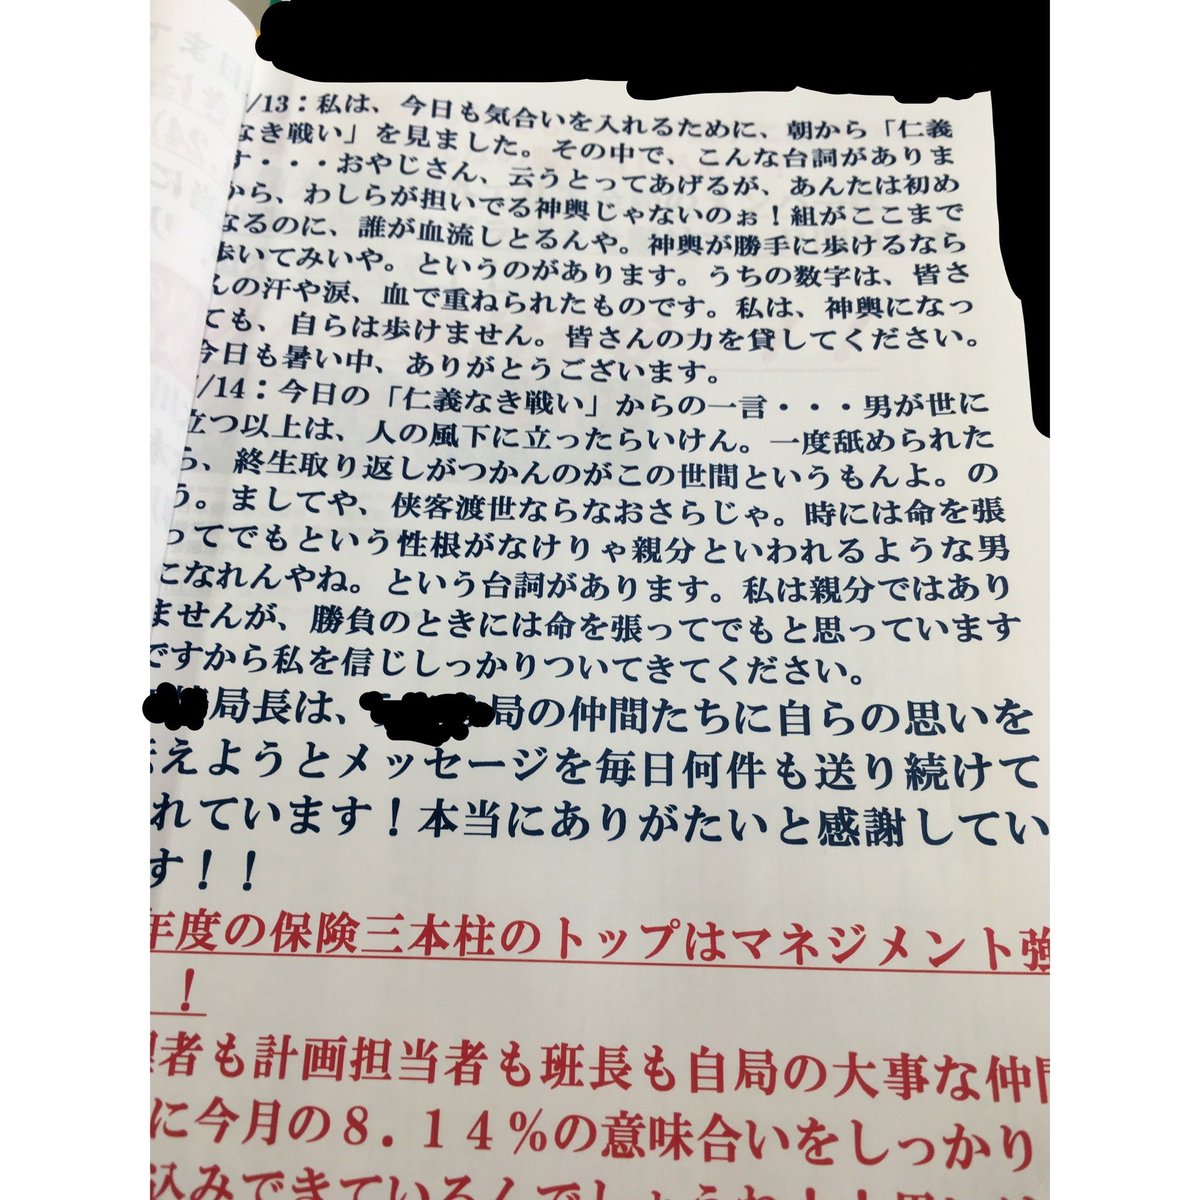 /13：私は、今日も気合いを入れるために、朝から「仁義
なき戦い」を見ました。その中で、こんな台詞がありま
す・・・おやじさん、云うとってあげるが、あんたは初め
から、わしらが担いでる神輿じゃないのぉ！組がここまで
なるのに、誰が血流しとるんや。神輿が勝手に歩けるなら
歩いてみいや。というのがあります。うちの数字は、皆さ
んの汗や涙、血で重ねられたものです。私は、神輿になっ
ても、自らは歩けません。皆さんの力を貸してください。
今日も暑い中、ありがとうございます。
/14：今日の「仁義なき戦い」からの一言・・・男が世に
立つ以上は、人の風下に立ったらいけん。一度舐められた
ら、終生取り返しがつかんのがこの世間というもんよ。の
う。ましてや、侠客渡世ならなおさらじゃ。時には命を張
ってでもという性根がなけりゃ親分といわれるような男
になれんやね。という台詞があります。私は親分ではあり
ませんが、勝負のときには命を張ってでもと思っています
ですから私を信じしっかりついてきてください。
局長は、局の仲間たちに自らの思いを
伝えようとメッセージを毎日何件も送り続けて
れています！本当にありがたいと感謝してい
す！！
年度の保険三本柱のトップはマネジメント強
！
理者も計画担当者も班長も自局の大事な仲間
に今月の８．１４％の意味合いをしっかり
込みできているんでしょうね！！